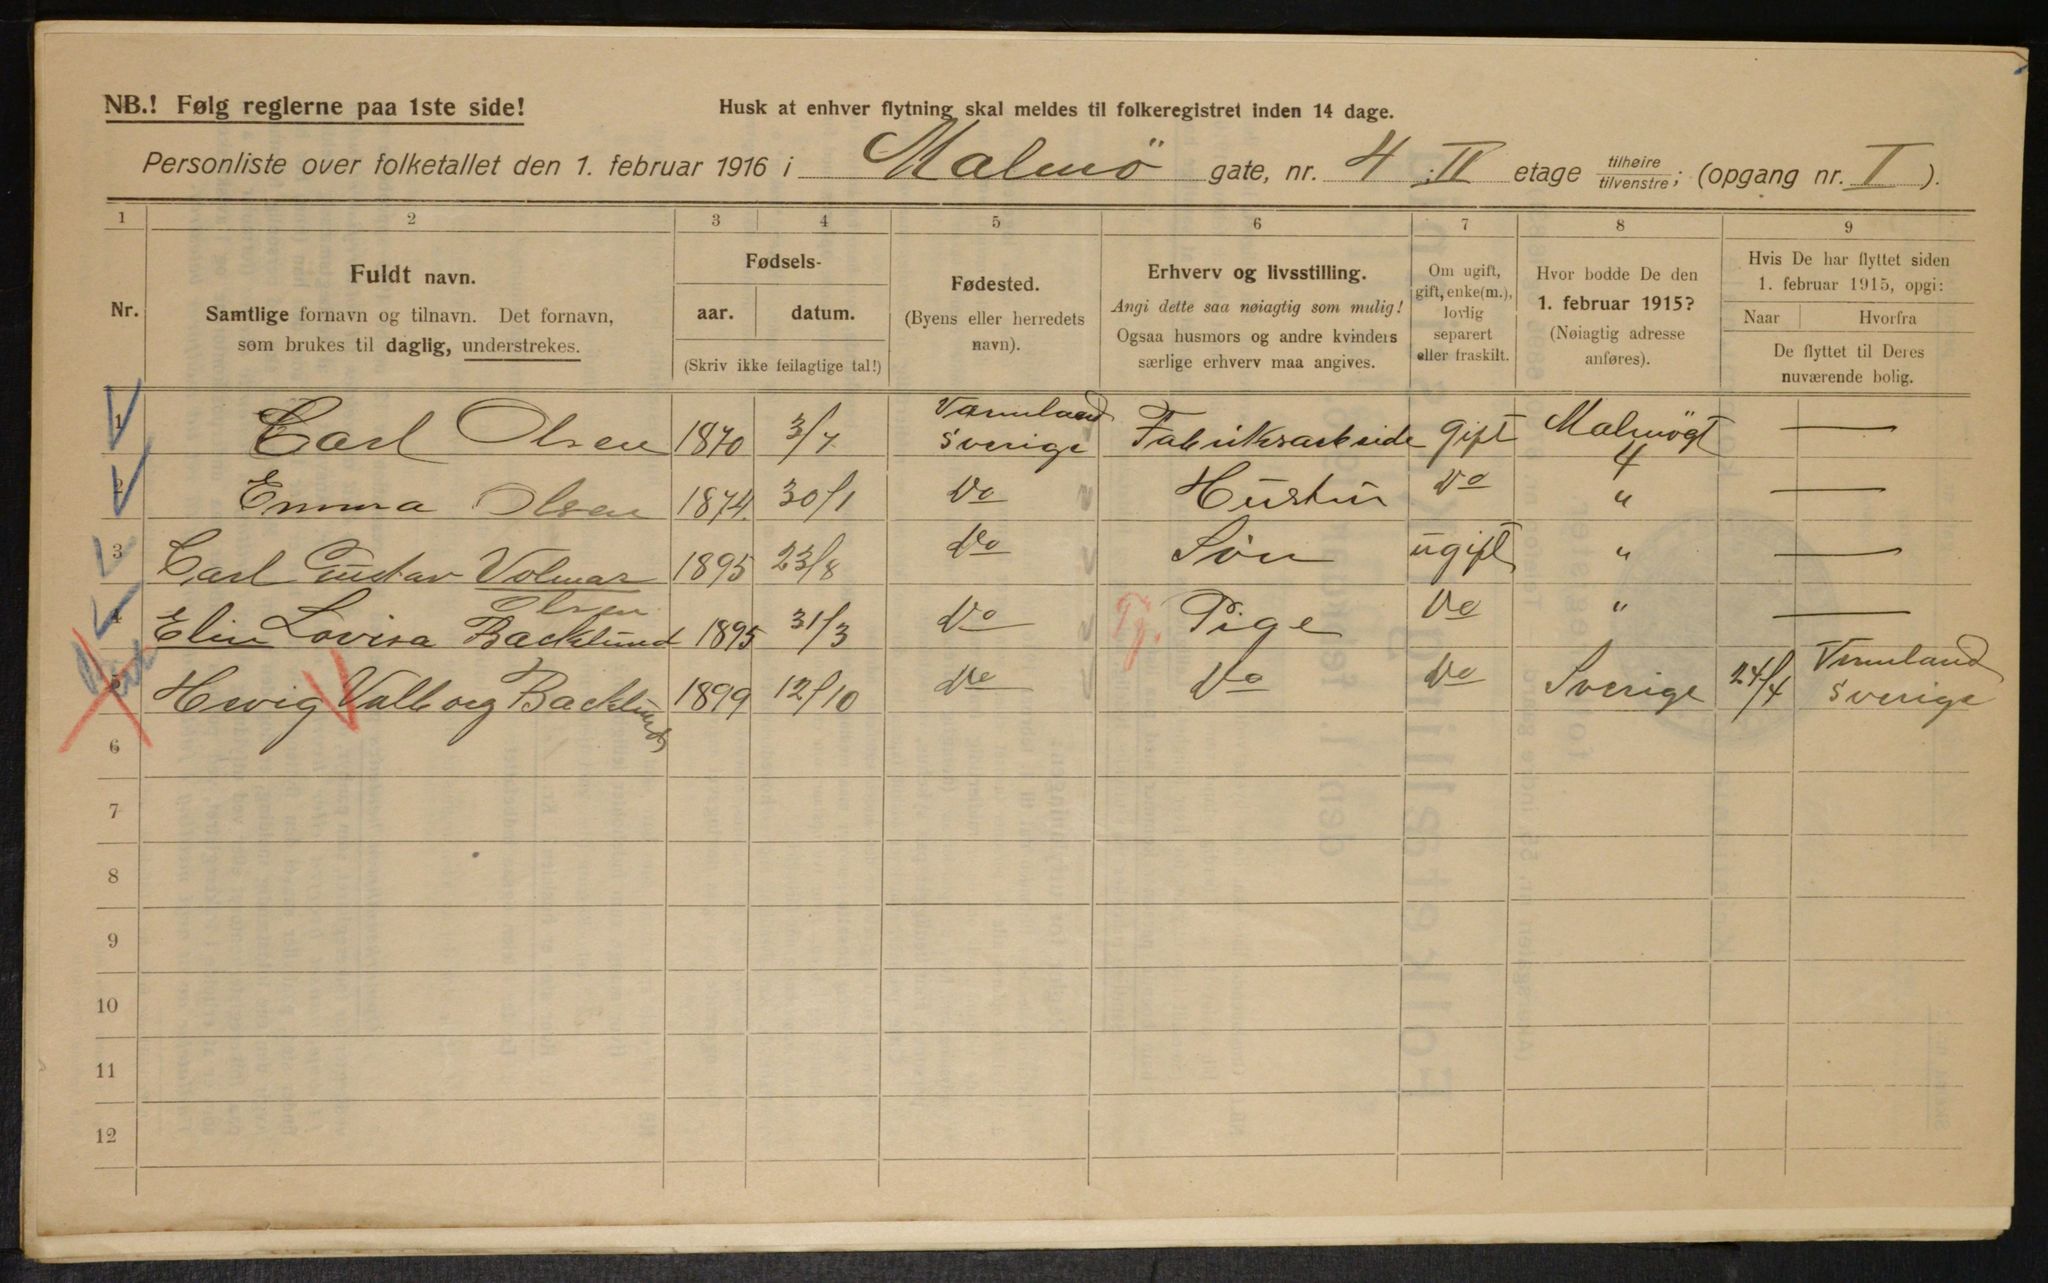 NB.! Følg reglerne paa 1ste side!
Husk at enhver flytning skal meldes til folkeregistret inden 14 dage.
Personliste over folketallet den 1. februar 1916 i Malmö gate, nr. 4 II etage tilhøire tilvenstre; (opgang nr. I ).
1 2 3 4 5 6 7 8 9
Nr.
Fuldt navn.
Samtlige fornavn og tilnavn. Det fornavn,
som brukes til daglig, understrekes.
Fødsels-
aar. datum.
(Skriv ikke feilagtige tal!)
Fødested.
(Byens eller herredets
navn).
Erhverv og livsstilling.
Angi dette saa nøiagtig som mulig!
Ogsaa husmors og andre kvinders
særlige erhverv maa angives.
Om ugift,
gift, enke(m.),
lovlig
separert
eller fraskilt.
Hvor bodde De den
1. februar 1915?
(Nøiagtig adresse
anføres).
Hvis De har flyttet siden
1. februar 1915, opgi:
Naar Hvorfra
De flyttet til Deres
nuværende bolig.
1 Carl Olsen 1870 3/7 Varmland Sverige Fabriksarbeide gift Malmögt 4 —
2 Emma Olsen 1874. 30/1 Do Hustru Do " —
3 Carl Gustav Volmar Olsen 1895 23/8 Do Sön ugift " —
4 Elin Lovisa Backlund 1895 31/3 Do Pige Do " —
5 Hevig Valborg Backlund 1899 12/10 Do Do Do Sverige 24/4 Vermland Sverige
6
7
8
9
10
11
12